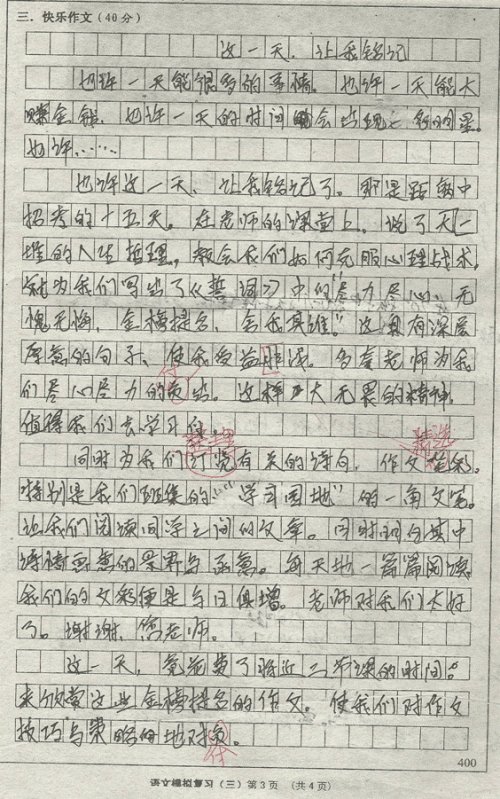 三. 快乐作文(40分)
这一天, 让我铭记
也许一天能很多的事情。也许一天能大
赚金钱, 也许一天的时间会出现一位明星。
也许……
也许这一天, 让我铭记了。那是距离中
招考的十五天。在老师的课堂上, 说了大一
堆的人生哲理, 教会我们如何克服心理战术,
就为我们写出了《誓词》中的"尽力尽心, 无
愧无悔, 金榜提名, 舍我其谁。"这具有深层
厚意的句子, 使我受益
老师为我
们尽心尽力的负出。这样大无畏的精神,
付
值得我们去学习
整理
精选
同时为我们 有关的诗句, 作文
特别是我们班集的"学习园地"的一角文笔。
让我们阅读同学之间的文章。同时明白其中
诗情画意的 与 每天地一篇篇阅读
我们的文彩便是与日俱增。老师对我们太好
了。谢谢, 您老师。
这一天, 花费了将近二节课的时间。
来欣赏这些金榜提名的作文。使我们对作文
技巧与策略的地对负。
付
400
语文模拟复习(三)第3页 (共4页)